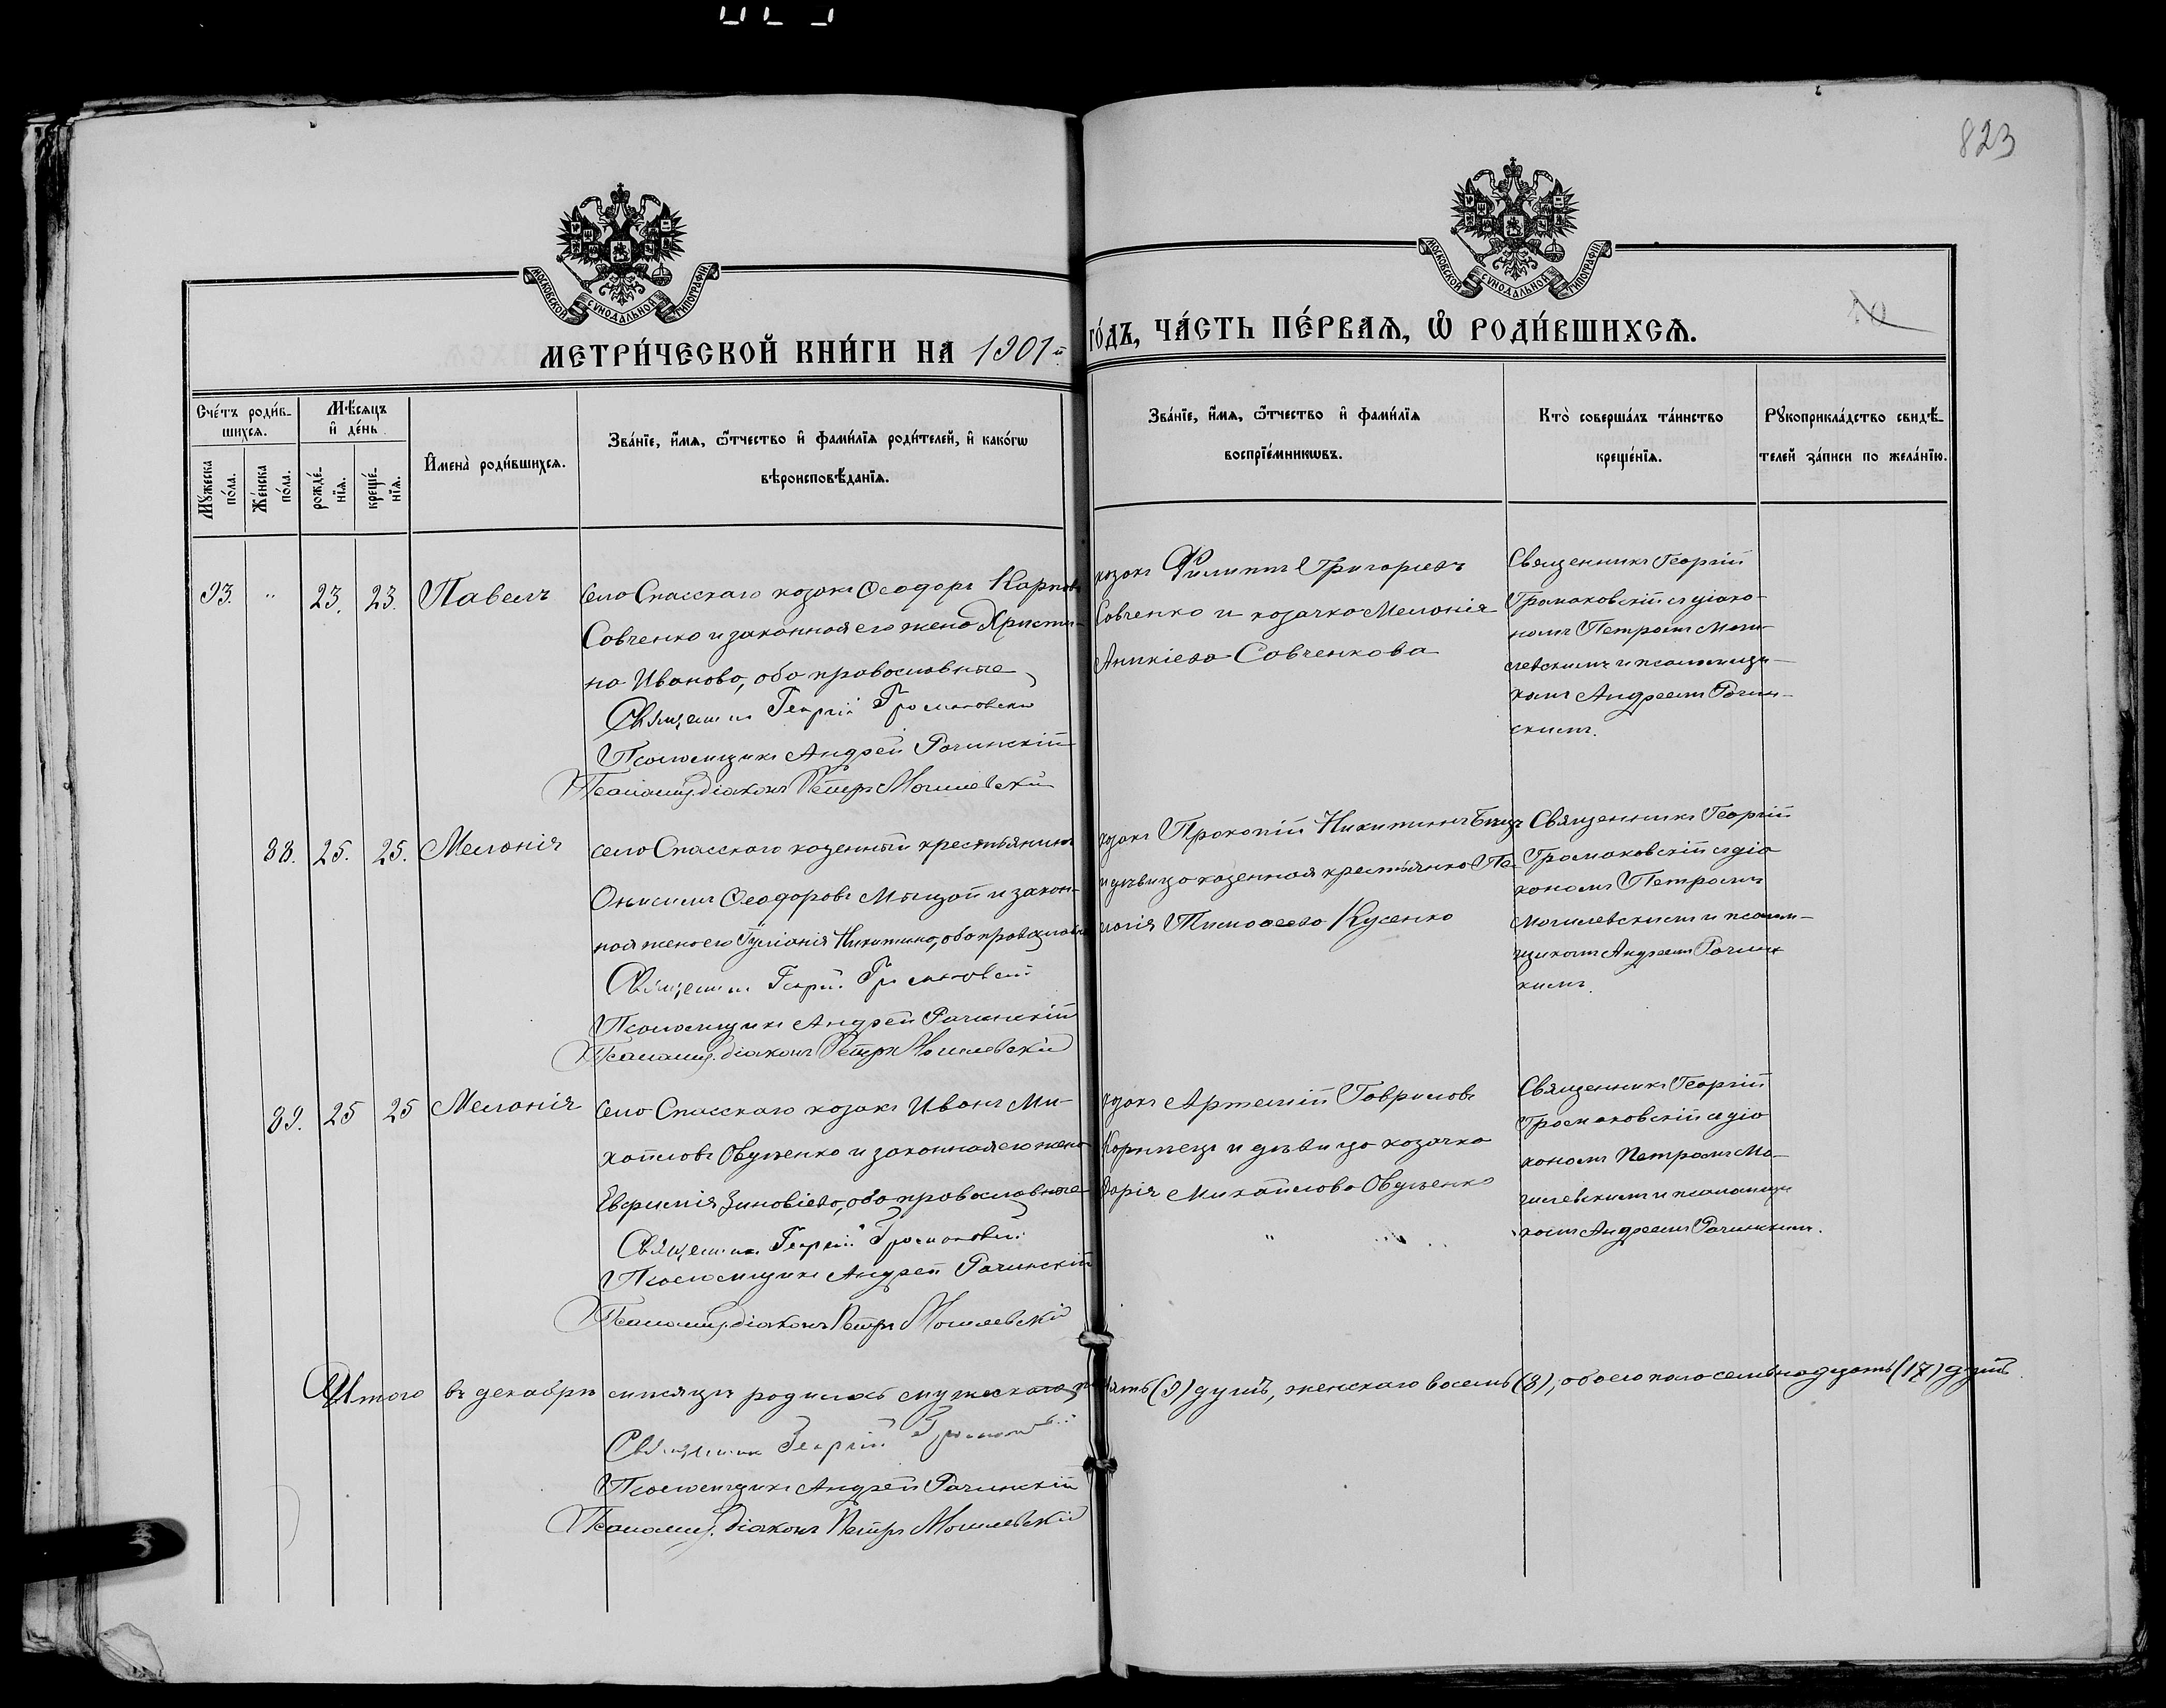 823
МОСКОВСКОЙ СѴНОДАЛЬНОЙ ТИПОГРАФІИ
МОСКОВСКОЙ СѴНОДАЛЬНОЙ ТИПОГРАФІИ
МЕТРИ́ЧЕСКОЙ КНИ́ГИ НА 1901й ГО́ДЪ, ЧА́СТЬ ПЕ́РВАѦ, Ѽ РОДИ́ВШИХСѦ.
Сче́тъ роди́в-
шихсѧ.
Мѣ́сѧцъ
и҆ де́нь
Мꙋ́жеска
по́ла.
Же́нска
по́ла.
рожде́-
нїѧ.
креще́-
нїѧ.
И҆мена̀ роди́вшихсѧ.
Зва́нїе, и҆́мѧ, ѻ҆́тчество и҆ фами́лїѧ роди́телей, и҆ како́гѡ
вѣроисповѣ́данїѧ.
Зва́нїе, и҆́мѧ, ѻ҆́тчество и҆ фами́лїѧ
воспрїе́мникѡвъ.
Кто̀ соверша́лъ та́инство
креще́нїѧ.
Рꙋкоприкла́дство свидѣ́-
телей за́писи по жела́нїю.
93. " 23. 23. Павелъ
Села Спасскаго козакъ Ѳеодоръ Карповъ
Савченко и законная его жена Христи-
на Иванова, оба православные
Священникъ Георгій Громаковскій
Псаломщикъ Андрей Рачинскій
Псаломщ. діаконъ Петръ Могилевскій
козакъ Филиппъ Григорьевъ
Савченко и козачка Меланія
Аникіева Савченкова
Священникъ Георгій
Громаковскій съ діако-
номъ Петромъ Моги-
левскимъ и псаломщи-
комъ Андреемъ Рачин-
скимъ.
88. 25. 25. Меланія
села Спасскаго казенный крестьянинъ
Онисимъ Ѳеодоровъ и закон-
ная жена его Іуліанія Никитина, оба православные
Священникъ Георгій Громаковскій
Псаломщикъ Андрей Рачинскій
Псаломщ. діаконъ Петръ Могилевскій
козакъ Прокопій Никитинъ
и дѣвица казенная крестьянка Пе-
лагія Тимоѳеева Кусенко
Священникъ Георгій
Громаковскій съ діа
кономъ Петромъ
Могилевскимъ и псалом-
щикомъ Андреемъ Рачинс
кимъ.
89. 25 25 Меланія
Села Спасскаго козакъ Иванъ Ми-
хайловъ Овдѣенко и законная его жена
Евфимія Зиновіева, оба православные
Священникъ Георгій Громаковскій
Псаломщикъ Андрей Рачинскій
Псаломщ. діаконъ Петръ Могилевскій
козакъ Артемій Гавриловъ
Корнѣецъ и дѣвица козачка
Дарія Михайлова Овдѣенко
Священникъ Георгій
Громаковскій съ діа
кономъ Петромъ Мо-
гилевскимъ и псаломщи
комъ Андреемъ Рачинскимъ.
Итого въ декабрѣ мѣсяцѣ родилось мужескаго девять (9) душъ, женскаго восемь (8), обоего пола семьнадцать (17) душъ.
Священникъ Георгій Громаковскій
Псаломщикъ Андрей Рачинскій
Псаломщ. діаконъ Петръ Могилевскій